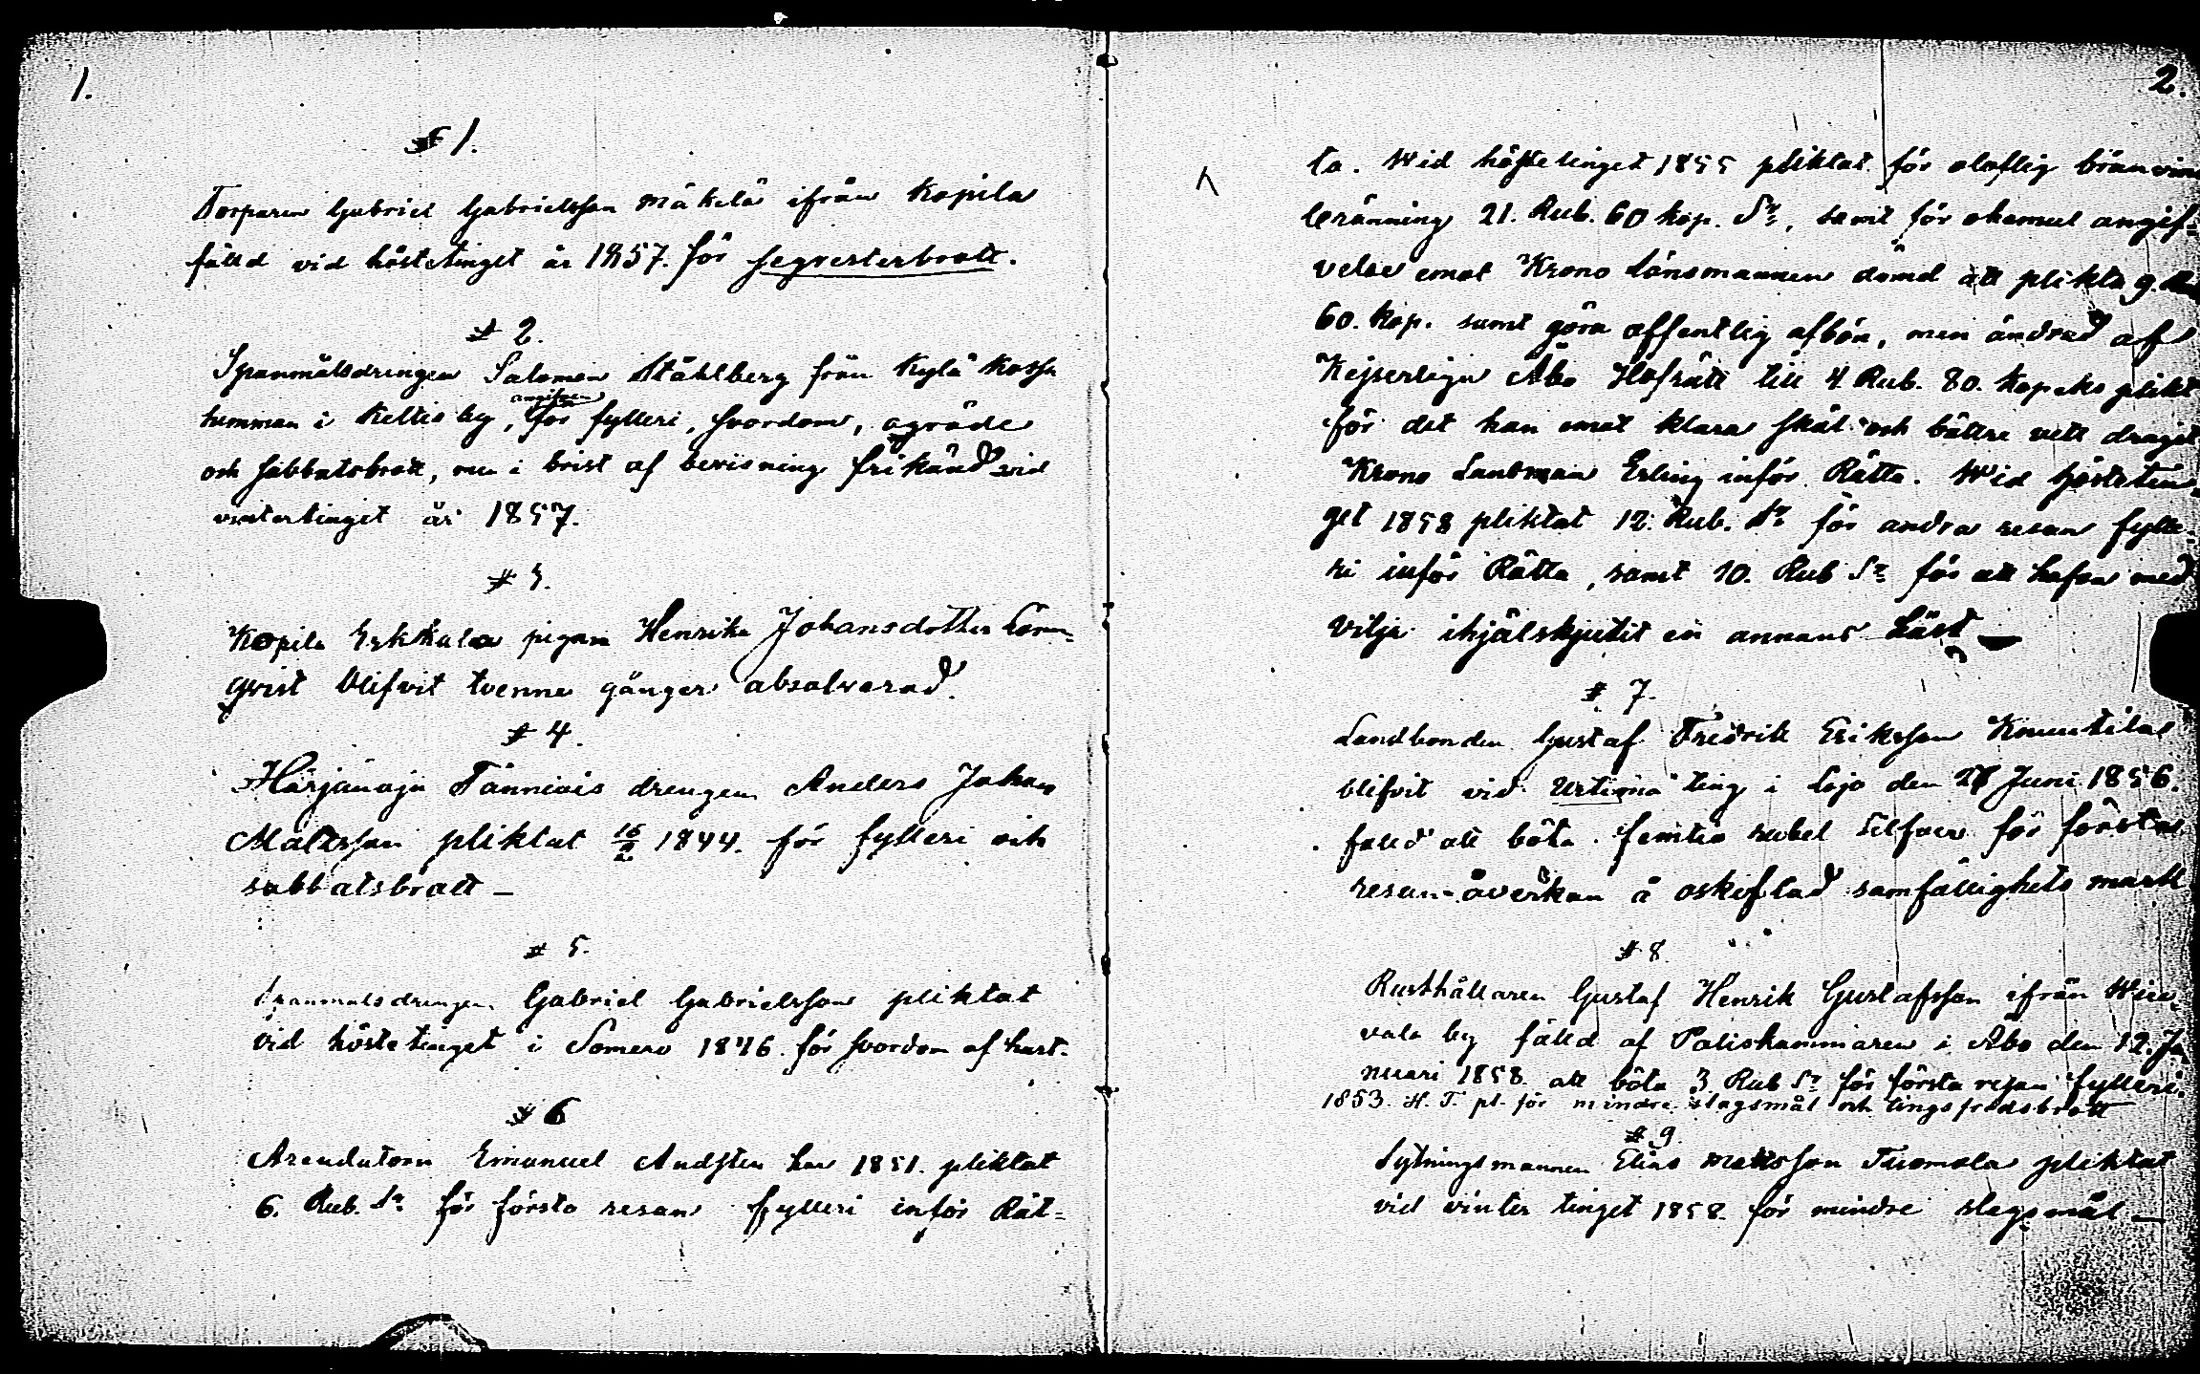 1.
§ 1.
Torparen Gabriel Gabrielsson Mäkelä ifrån Kopila
fälld vid höstetinget år 1857. för seqvesterbrott.
§ 2.
Spanmålsdrengen Salomon Ståhlberg från Kylä Kossa
hemman i Keltis by, angifven för fylleri, svordom, ogräde
och sabbatsbrott, men i brist af bevisning frikänd vid
vintertinget år 1857.
§ 3.
Kopila Erkkula pigan Henrika Johansdotter Lönn-
qvist blifvit tvenne gånger absolverad.
§ 4.
Härjänoja Tanniois drengen Anders Johan
Mattsson pliktat 16/2 1844. för fylleri och
sabbatsbrott –
§ 5.
Spanmålsdrengen Gabriel Gabrielsson pliktat
vid höstetinget i Somero 1846. för svordom af hast.
§ 6
Arendatorn Emanuel Andsten har 1851. pliktat
6. Rub. Sr för första resan fylleri inför Rät-
2.
ta. Wid höstetinget 1855 pliktat för olaflig bränvins
bränning 21. Rub. 60 kop. Sr, samt för ohemul angif-
velse emot Krono Länsmannen dömd att plikta 9. Rub
60. kop. samt göra offentlig afbön, men ändrad af
Kejserliga Åbo Hofrätt till 4 Rub. 80. Kopeks plikt
för det han emot klara skäl och bättre vett draget
Krono Länsman Erling inför Rätta. Wid hösteting-
get 1858 pliktat 12. Rub. Sr för andra resan fylle-
ri inför Rätta, samt 10. Rub Sr för att hafva med
vilja ihjälskjutit en annans häst –
§ 7.
Landbonden Gustaf Fredrik Eriksson Konentila
blifvit vid Urtima ting i Lojo den 27 Juni 1856.
fälld att böta femtio rubel Silfver för första
resan åverkan å oskiftad samfällighets mark
§ 8.
Rusthållaren Gustaf Henrik Gustafsson ifrån Wiu-
vala by fälld af Poliskammaren i Åbo den 12. Ja
nuari 1858. att böta 3 Rub Sr för första resan fylleri.
1853. H. T. pl. för mindre slagsmål och tingsfredsbrott
§ 9.
Sytningsmannen Elias Mattsson Tuomola pliktat
vid vinter tinget 1858. för mindre slagsmål –